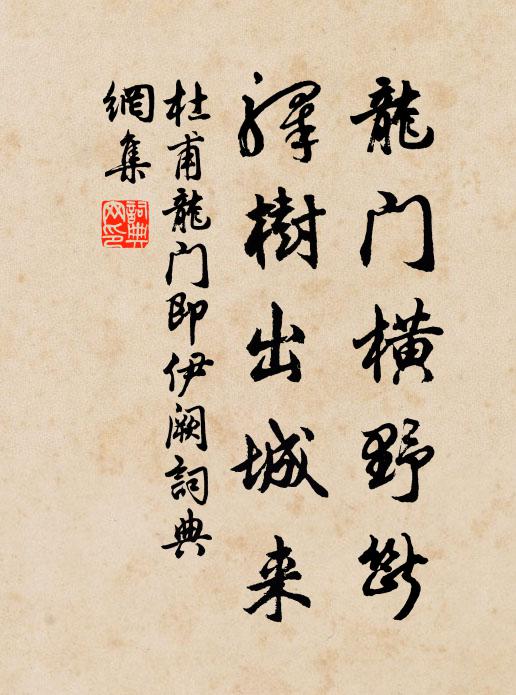 龍门橫野斷
驛樹出城来
杜甫龍门即伊阙詞典
網集
詞典网印